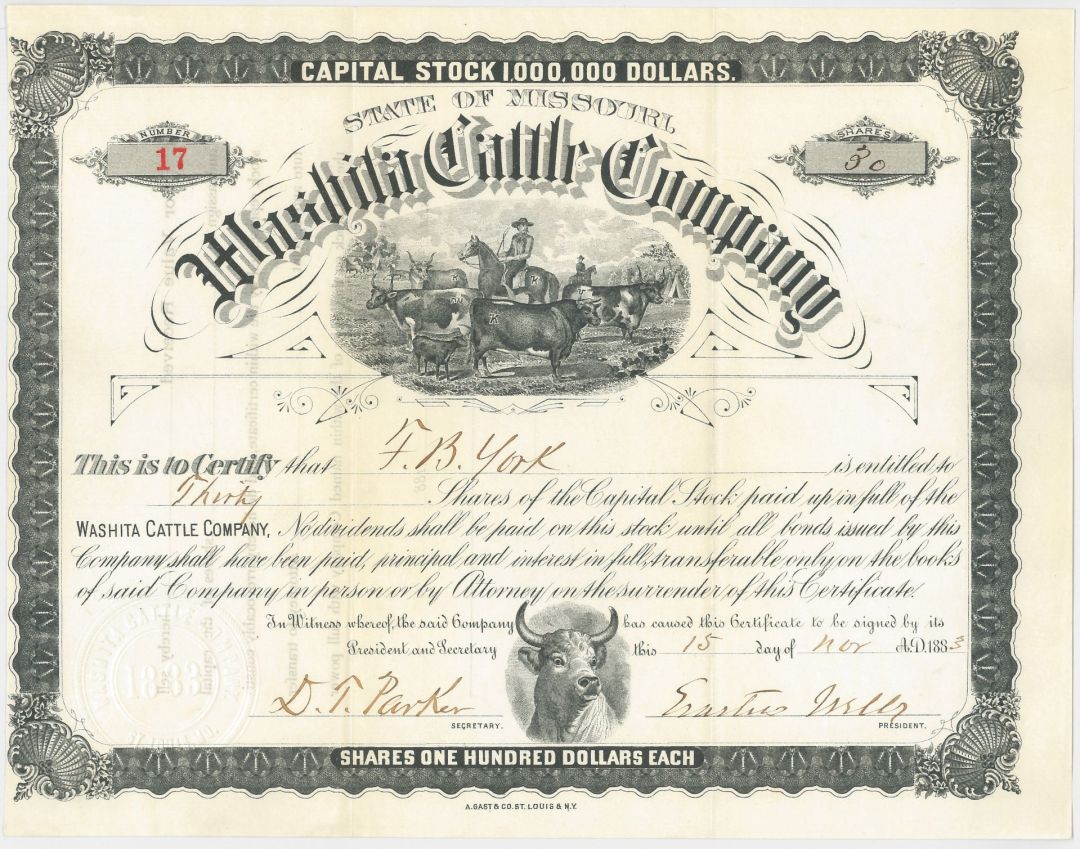 CAPITAL STOCK 1,000,000 DOLLARS.
STATE OF MISSOURI,
NUMBER
17
SHARES
30
Washita Cattle Company
This is to Certify that F. B. York is entitled to
Thirty Shares of the Capital Stock paid up in full of the
WASHITA CATTLE COMPANY, No dividends shall be paid on this stock until all bonds issued by this
Company shall have been paid, principal and interest in full, transferable only on the books
of said Company in person or by Attorney on the surrender of this Certificate.
In Witness whereof, the said Company has caused this Certificate to be signed by its
President and Secretary this 15 day of Nov A.D. 1883
1883
D. T. Parker
SECRETARY.
Erastus Wells
PRESIDENT.
SHARES ONE HUNDRED DOLLARS EACH
A. GAST & CO. ST. LOUIS & N.Y.